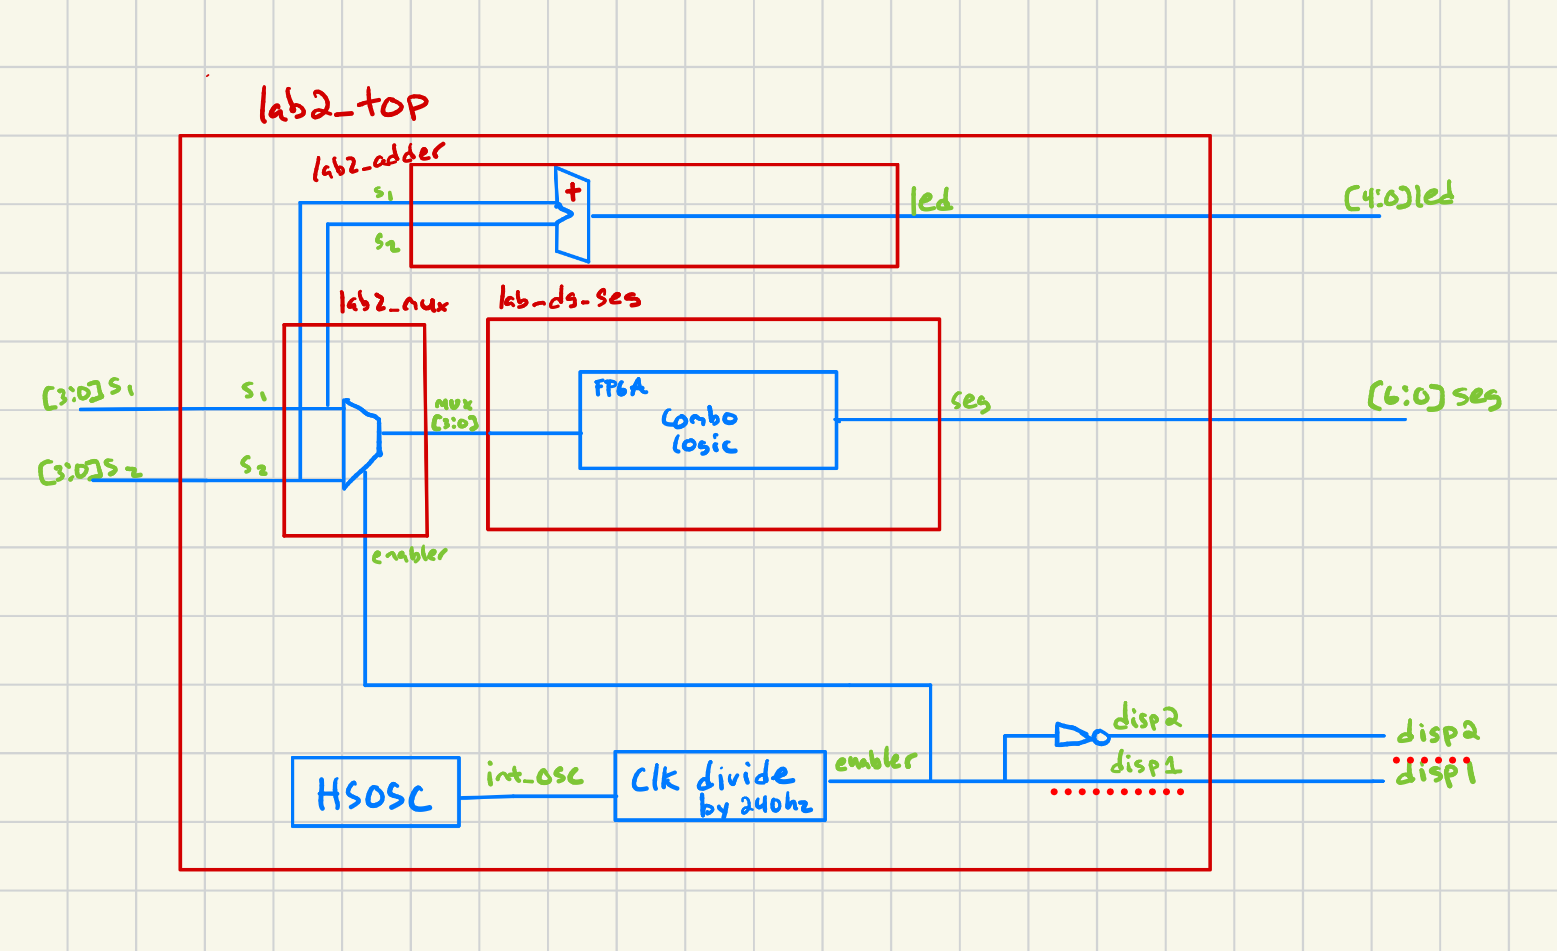 lab2_top
lab2_adder
s1
+
led
[4:0]led
s2
lab2_mux
lab_dg_seg
[3:0]s1
s1
mux
[3:0]
FPGA
combo
logic
seg
[6:0]seg
[3:0]s2
s2
enabler
HSOSC
int_osc
Clk divide
by 240hz
enabler
disp2
disp1
disp2
disp1